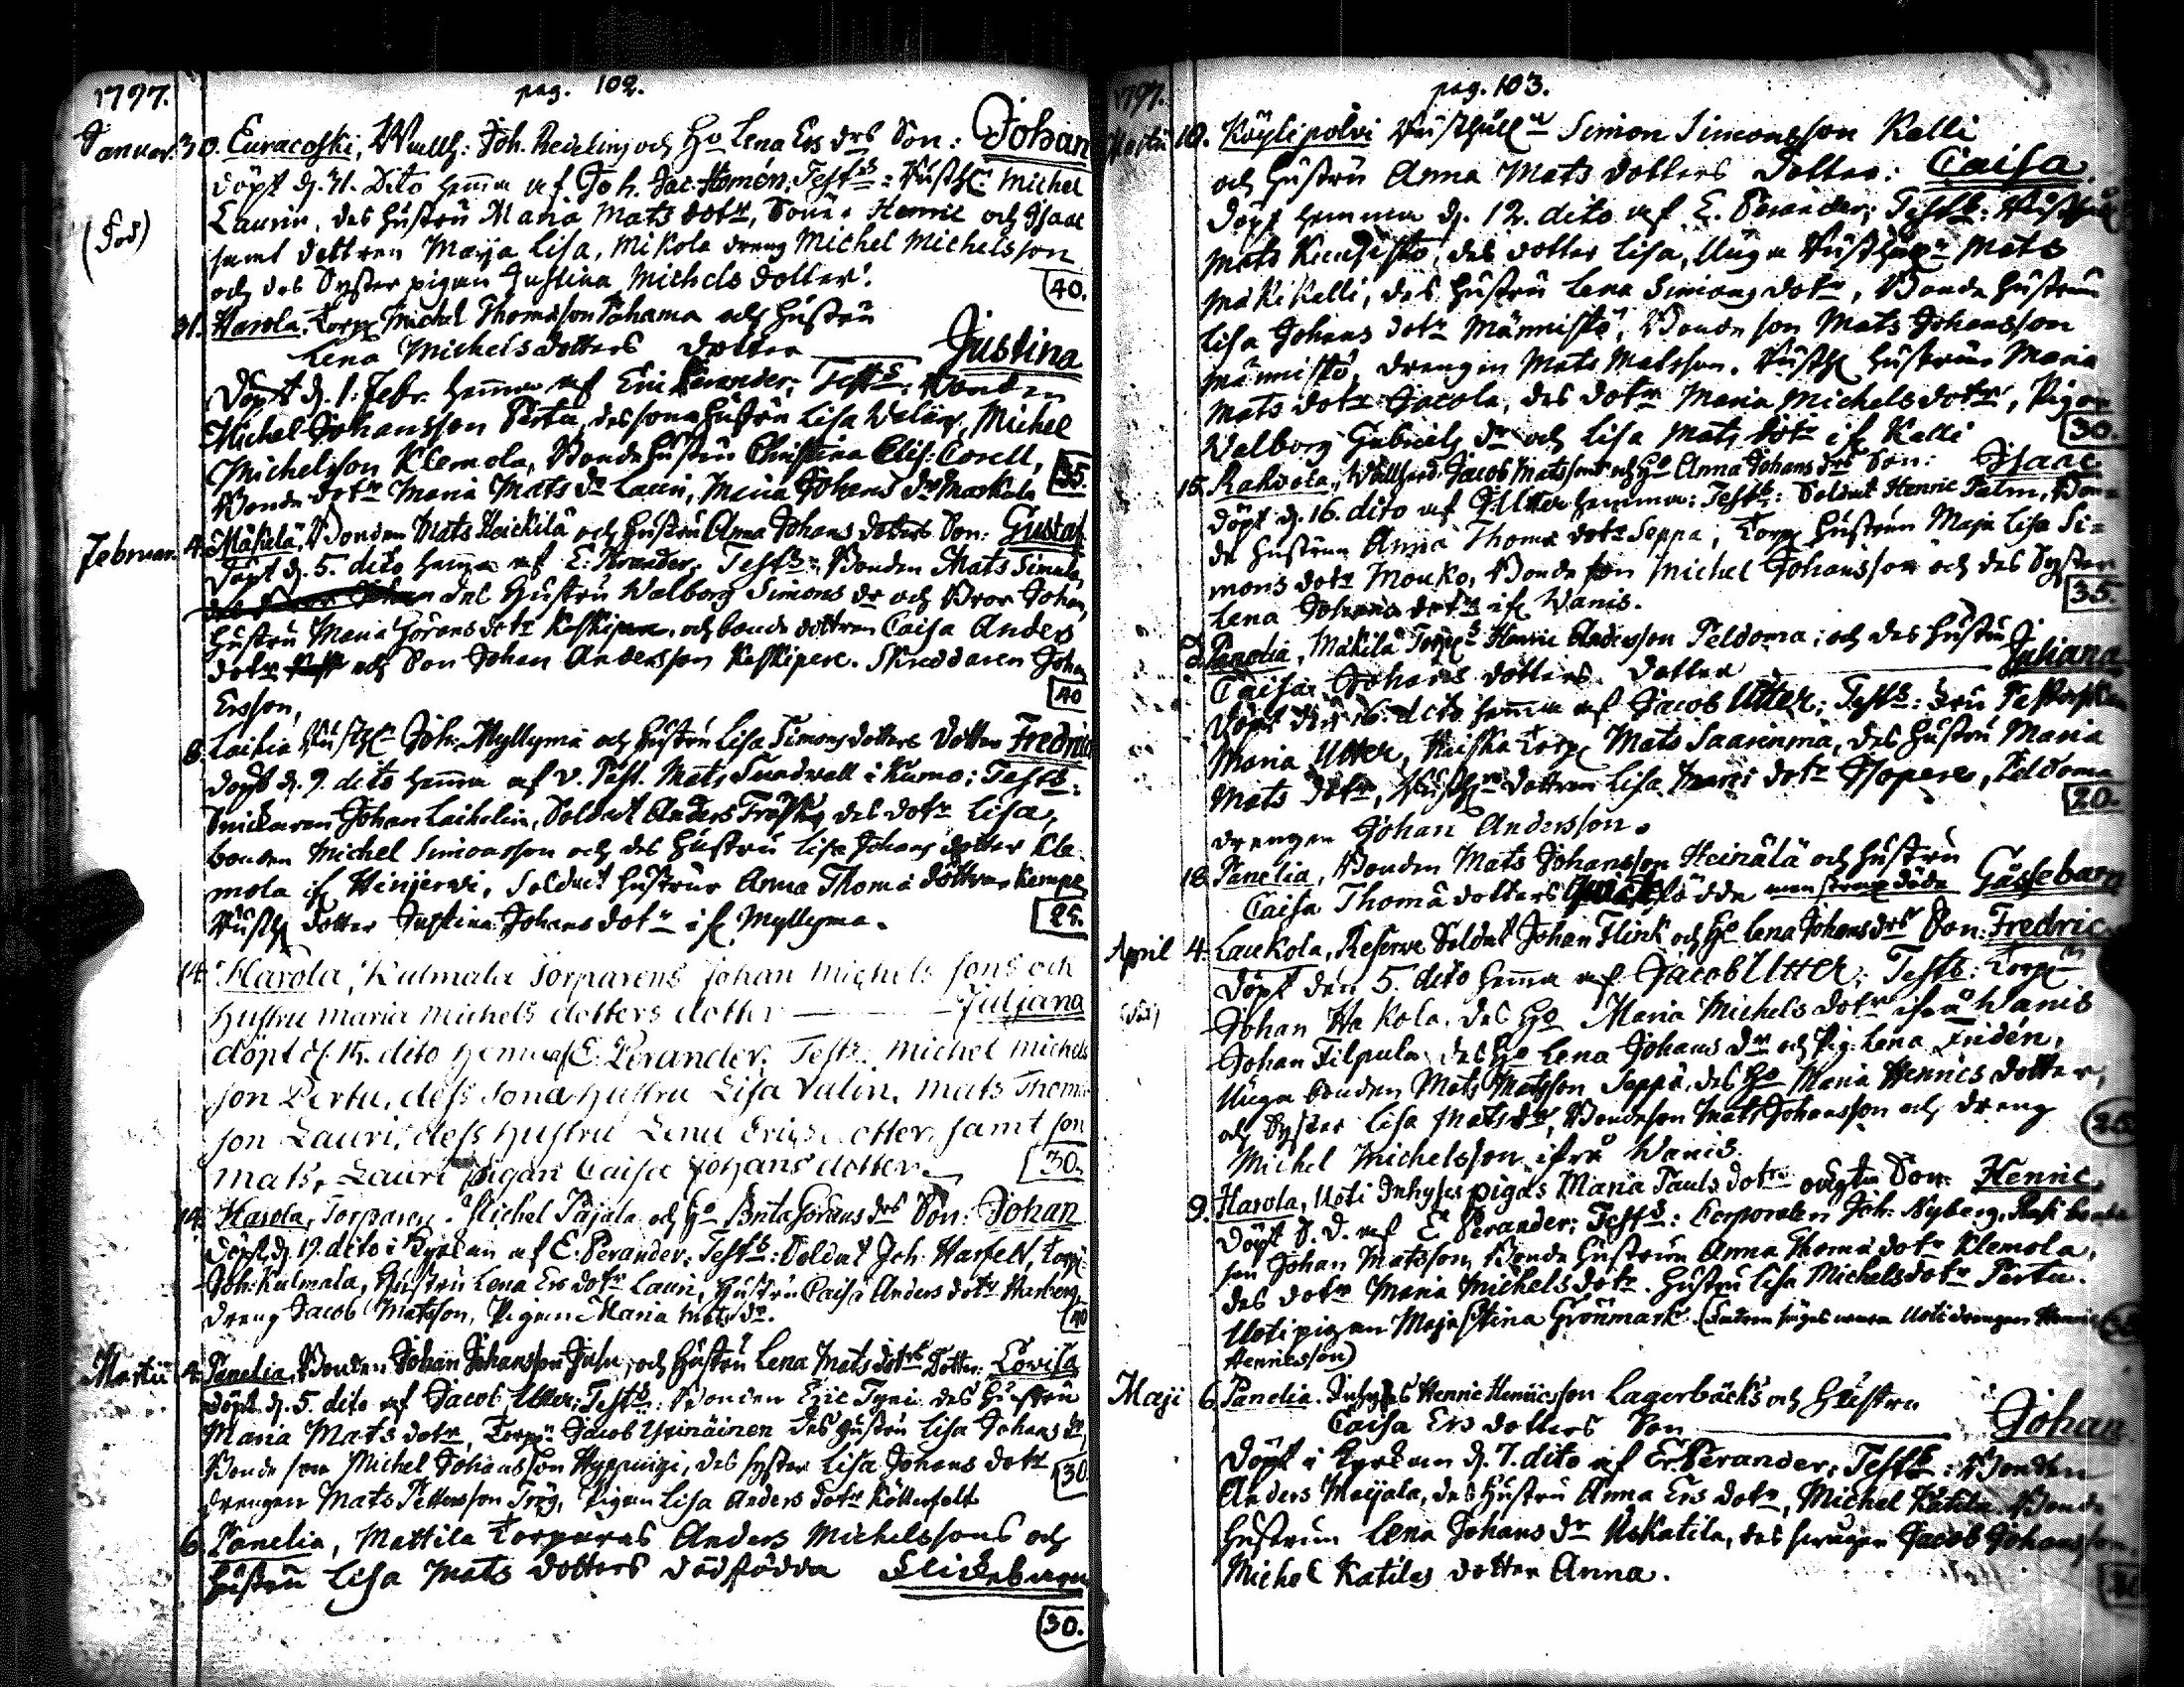 1797.
pag. 102.
Januar. 30. Euracoski, Wallh: Joh. Redelins och Ho Lena Ers drs Son: Johan
döpt d. 31. Dito hemma af Joh. Jac. Homén; Tests: Rusth: Michel
Laurin, des hustru Maria Mats dotr, Sone Henric och Isaac
(Död)
samt dottren Maija Lisa, Mikola dreng Michel Michelsson
och des Syster pigan Justina Michels dotter.
40.
31. Harola, Torp: Michel Thomasson Pahama och hustru
Lena Michelsdotters dotter Justina
Döpt d. 1. Febr. hemma af Eric Perander; Tests: Bonden
Michel Johansson Pertu, des sona hustru Lisa Walin, Michel
Michelsson Klemola, Bonde hustru Christina Elis: Corell,
Bonde dotr Maria Mats dr Lauri, Maria Johans dr Maskala
35.
Februar. 4. Mäkelä, Bonden Mats Heickilä och hustru Anna Johans dotters Son: Gustaf
Döpt d. 5. dito hemma af E: Perander. Tests: Bonden Mats Simula,
des hustru Walborg Simons dr och Bror Johan,
hustru Maria Jörans dotr Keskipere, och bonde dottren Caisa Anders
dotr och Son Johan Andersson Keskipere. Skreddaren Johan
Ersson,
40
8. Laihia Rusth: Joh: Myllymä och hustru Lisa Simons dotters dotter Fredrica
döpt d. 9. dito hemma af v. Past. Mats Sundwall i Kumo; Tests:
Snickaren Johan Laihelin, Soldat Anders Frisk, des dotr Lisa,
bonden Michel Simonsson och des hustru Lisa Johans dotter Kle-
mola if Hinjerwi, Soldat hustrun Anna Thomä dotter Kempe,
Rusth dotter Justina Johans dotr if Myllymä.
25.
14. Harola, Kulmala Torparens Johan Michels sons och
hustru maria michels dotters dotter Juljana
döpt d. 15. dito hemma af E. Perander. Test: Michel michels
son Pertu, dess sona hustru Lisa Valin, mats Thoma
son Lauri, dess hustru Lena Erics dotter, samt son
mats, Lauri pigan Caisa Johans dotter.
30.
14. Harola, Torparen Michel Pajala och Ho Brita Jörans drs Son: Johan
Döpt d. 19. dito i Kyrkan af E. Perander; Tests: Soldat Joh: Harfelt, Torp:
Joh: Kulmala, hustru Lena Ers dotr Lauri, hustru Caisa Anders dotr Harberg,
dreng Jacob Matsson, Pigan Maria Mats dr.
40
Martii 4. Panelia, Bonden Johan Johansson Jusu, och hustru Lena Mats dotrs Dotter: Lovisa
döpt d. 5. dito af Jacob Utter; Tests: Bonden Eric Tyni des hustru
Maria Mats dotr, Torp: Jacob Yrinäinen des hustru Lisa Johans dr,
Bonde son Michel Johansson Hyppingi, des syster Lisa Johans dotr
drengen Mats Pettersson Trög, Pigan Lisa Anders dotr Kötterfelt
30
6. Panelia, Mattila Torparens Anders Michelssons och
hustru Lisa Mats dotters dödfödda Flickebarn
30.
1797.
pag. 103.
Martii 10. Köylipolvi Rusthull: Simon Simonsson Kalli
och hustru Anna Mats dotters Dotter: Caisa.
Döpt hemma d. 12. dito af E. Perander; Tests: Rusth:
Mats Kuusisto, des dotter Lisa, Unga Rusth: Mats
Mäkikalli, des hustru Lena Simons dotr, Bonde hustrun
Lisa Johans dotr Männistö, Bonde son Mats Johansson
Männistö, drengen Mats Matsson. Rusth hustrun Maria
Mats dotr Jacola, des dotr Maria Michels dotr, Pigan
Walborg Gabriels dr och Lisa Mats dotr if Kalli
30.
15. Rahvola, Wallherd. Jacob Matssons och Ho Anna Johans drs Son: Isaac
döpt d. 16. dito af J. Utter hemma: Tests: Soldat Henric Palm, Bon-
de hustrun Anna Thoma dotr Seppä, Torp: hustrun Maja Lisa Si-
mons dotr Mouko, Bonde son Michel Johansson och des Syster
Lena Johans dotr if Wanis.
35.
Panelia, Mäkilä Torp: Henric Andersson Peldoma; och des hustru
Caisa Johans dotters dotter Juliana
Döpt den 16. dito hemma af Jacob Utter; Tests: Fru
Maria Utter, Heiska Torp: Mats Saarenmä, des hustru Maria
Mats dotr, dottren Lisa dotr Isopere, Peldoma
drengen Johan Andersson.
20.
18. Panelia, Bonden Mats Johansson Heinälä och hustru
Caisa Thomä dotters födde men straxt döde Gossebarn
April 4. Laukola, Reserve Soldat Johan Flink och Ho Lena Johans drs Son: Fredric
döpt den 5. dito hemma af Jacob Utter; Tests: Torp:
(död)
Johan Hakola, des Ho Maria Michels dotr ifrå Wanis
Johan Filpula des Ho Lena Johans dr och Pig. Lena Fridén,
Unga bonden Mats Matsson Seppä, des Ho Maria Henrics dotter,
och Syster Lisa Mats dr, Bondeson Mats Johansson och dreng
Michel Michelsson ifrå Wanis.
9. Harola, Uoti Inhyses pigas Maria Pauls dotrs oägta Son: Henric,
döpt S. D. af E Perander; Tests: Corporalen Joh: Nyberg,
son Johan Matsson, Bonde hustrun Anna Thomä dotr Klemola,
des dotr Maria Michels dotr. hustru Lisa Michels dotr Pertu.
Uoti pigan Maja Stina Grönmark. (Fadren säges wara Uoti drengen Henric
Henricsson)
Maji 6. Panelia. Inhyses Henric Henricsson Lagerbäcks och hustru
Caisa Ers dotters Son Johan
Döpt i Kyrkan d. 7. dito af Er. Perander; Tests: Bonden
Anders Maijala, des hustru Anna Ers dotr, Michel Katila Bonde
hustrun Lena Johans dr Uskatila, des Jacob Johansson.
Michel Katilas dotter Anna.